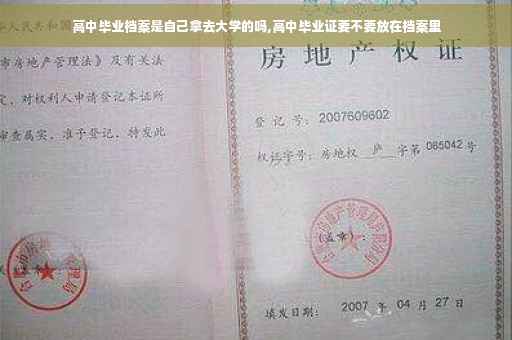 高中毕业档案是自己拿去大学的吗,高中毕业证要不要放在档案里
华人民共和国
市房地产管理法》及有关
定,对权利人申请登记本证所
审查属实,准予登记,特发此
房地产权证
登记号: 2007609602
权证字号: 房地权 庐 字第 065042 号
(盖章):
填发日期: 2007 年 04 月 27 日